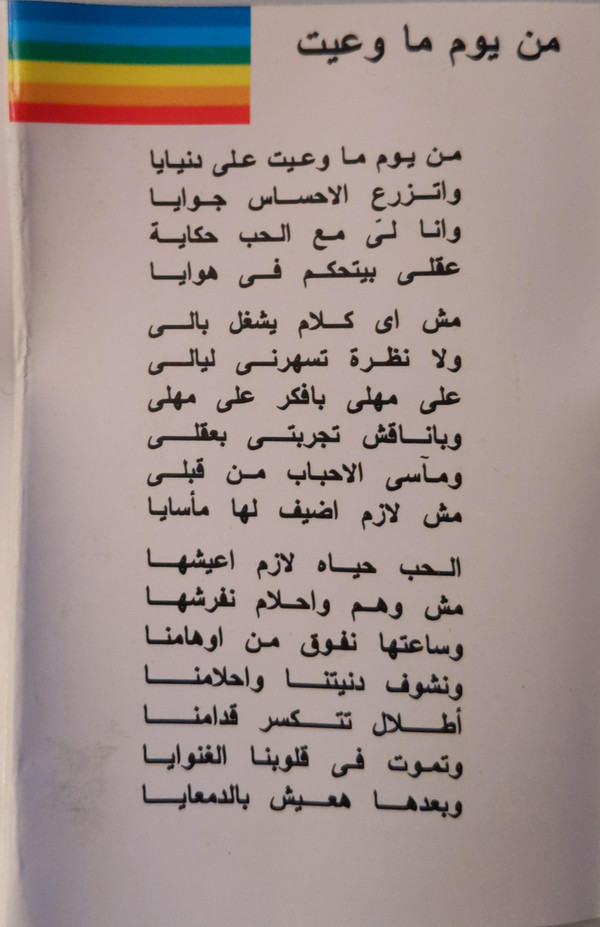 من يوم ما وعيت
من يوم ما وعيت على دنيايا
واتزرع الاحساس جوايا
وانا لىّ مع الحب حكاية
عقلى بيتحكم فى هوايا
مش اى كلام يشغل بالى
ولا نظرة تسهرنى ليالى
على مهلى بافكر على مهلى
وباناقش تجربتى بعقلى
ومآسى الاحباب من قبلى
مش لازم اضيف لها مأسايا
الحب حياه لازم اعيشها
مش وهم واحلام نفرشها
وساعتها نفوق من اوهامنا
ونشوف دنيتنا واحلامنا
أطلال تتكسر قدامنا
وتموت فى قلوبنا الغنوايا
وبعدها هعيش بالدمعايا